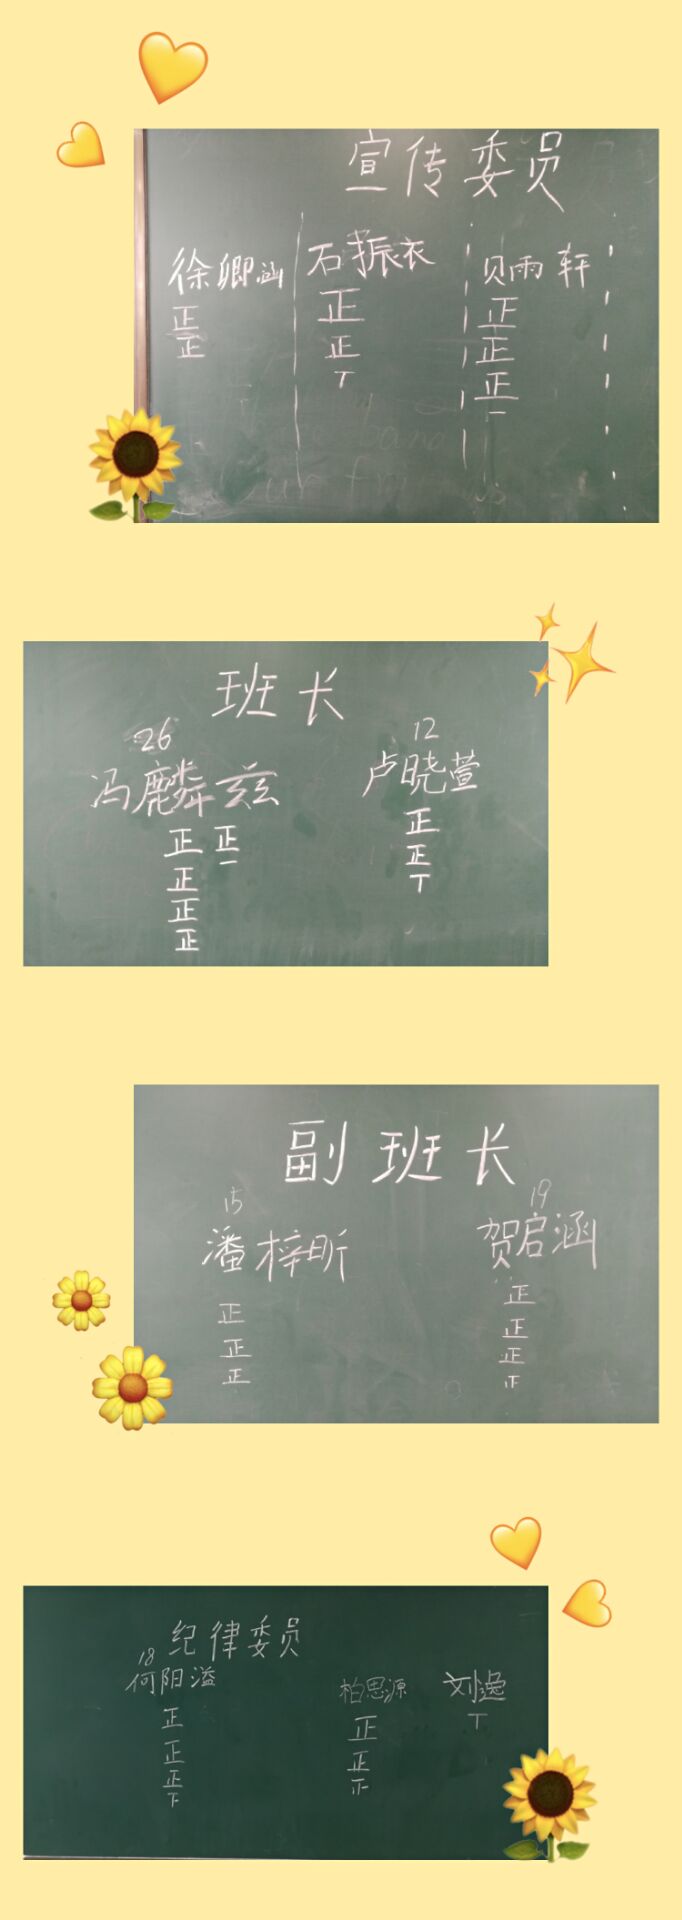 宣传委员
徐卿涵 石振衣 贝雨轩
正 正 正
正 正 正
丅 正
一
班长
26 12
冯麟兹 卢晓萱
正 正 正
正 一 正
正 丅
正
副班长
15 19
潘梓昕 贺启涵
正 正
正 正
正 正
纪律委员
18
何阳溢 柏思源 刘逸
正 正 丅
正 正
正